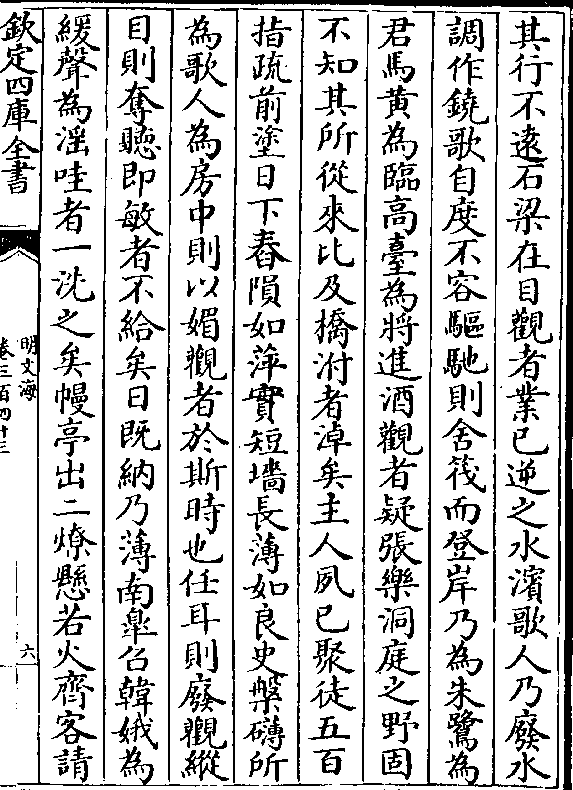 其行不遠石梁在目觀者業已逆之水濱歌人乃廢水
調作鐃歌自度不容驅馳則舍筏而登岸乃為朱鷺為
君馬黄為臨高臺為將進酒觀者疑張樂洞庭之野固
不知其所從來比及橋泭者淖矣主人夙已聚徒五百
指疏前塗日下舂隕如萍實短墻長薄如良史槃礴所
為歌人為房中則以媚觀者於斯時也任耳則廢觀縱
目則奪聽即敏者不給矣日既納乃薄南臯召韓娥為
緩聲為滛哇者一洗之矣幔亭出二燎懸若火齊客請
欽定四庫全書
明文海
卷三百四十三
六